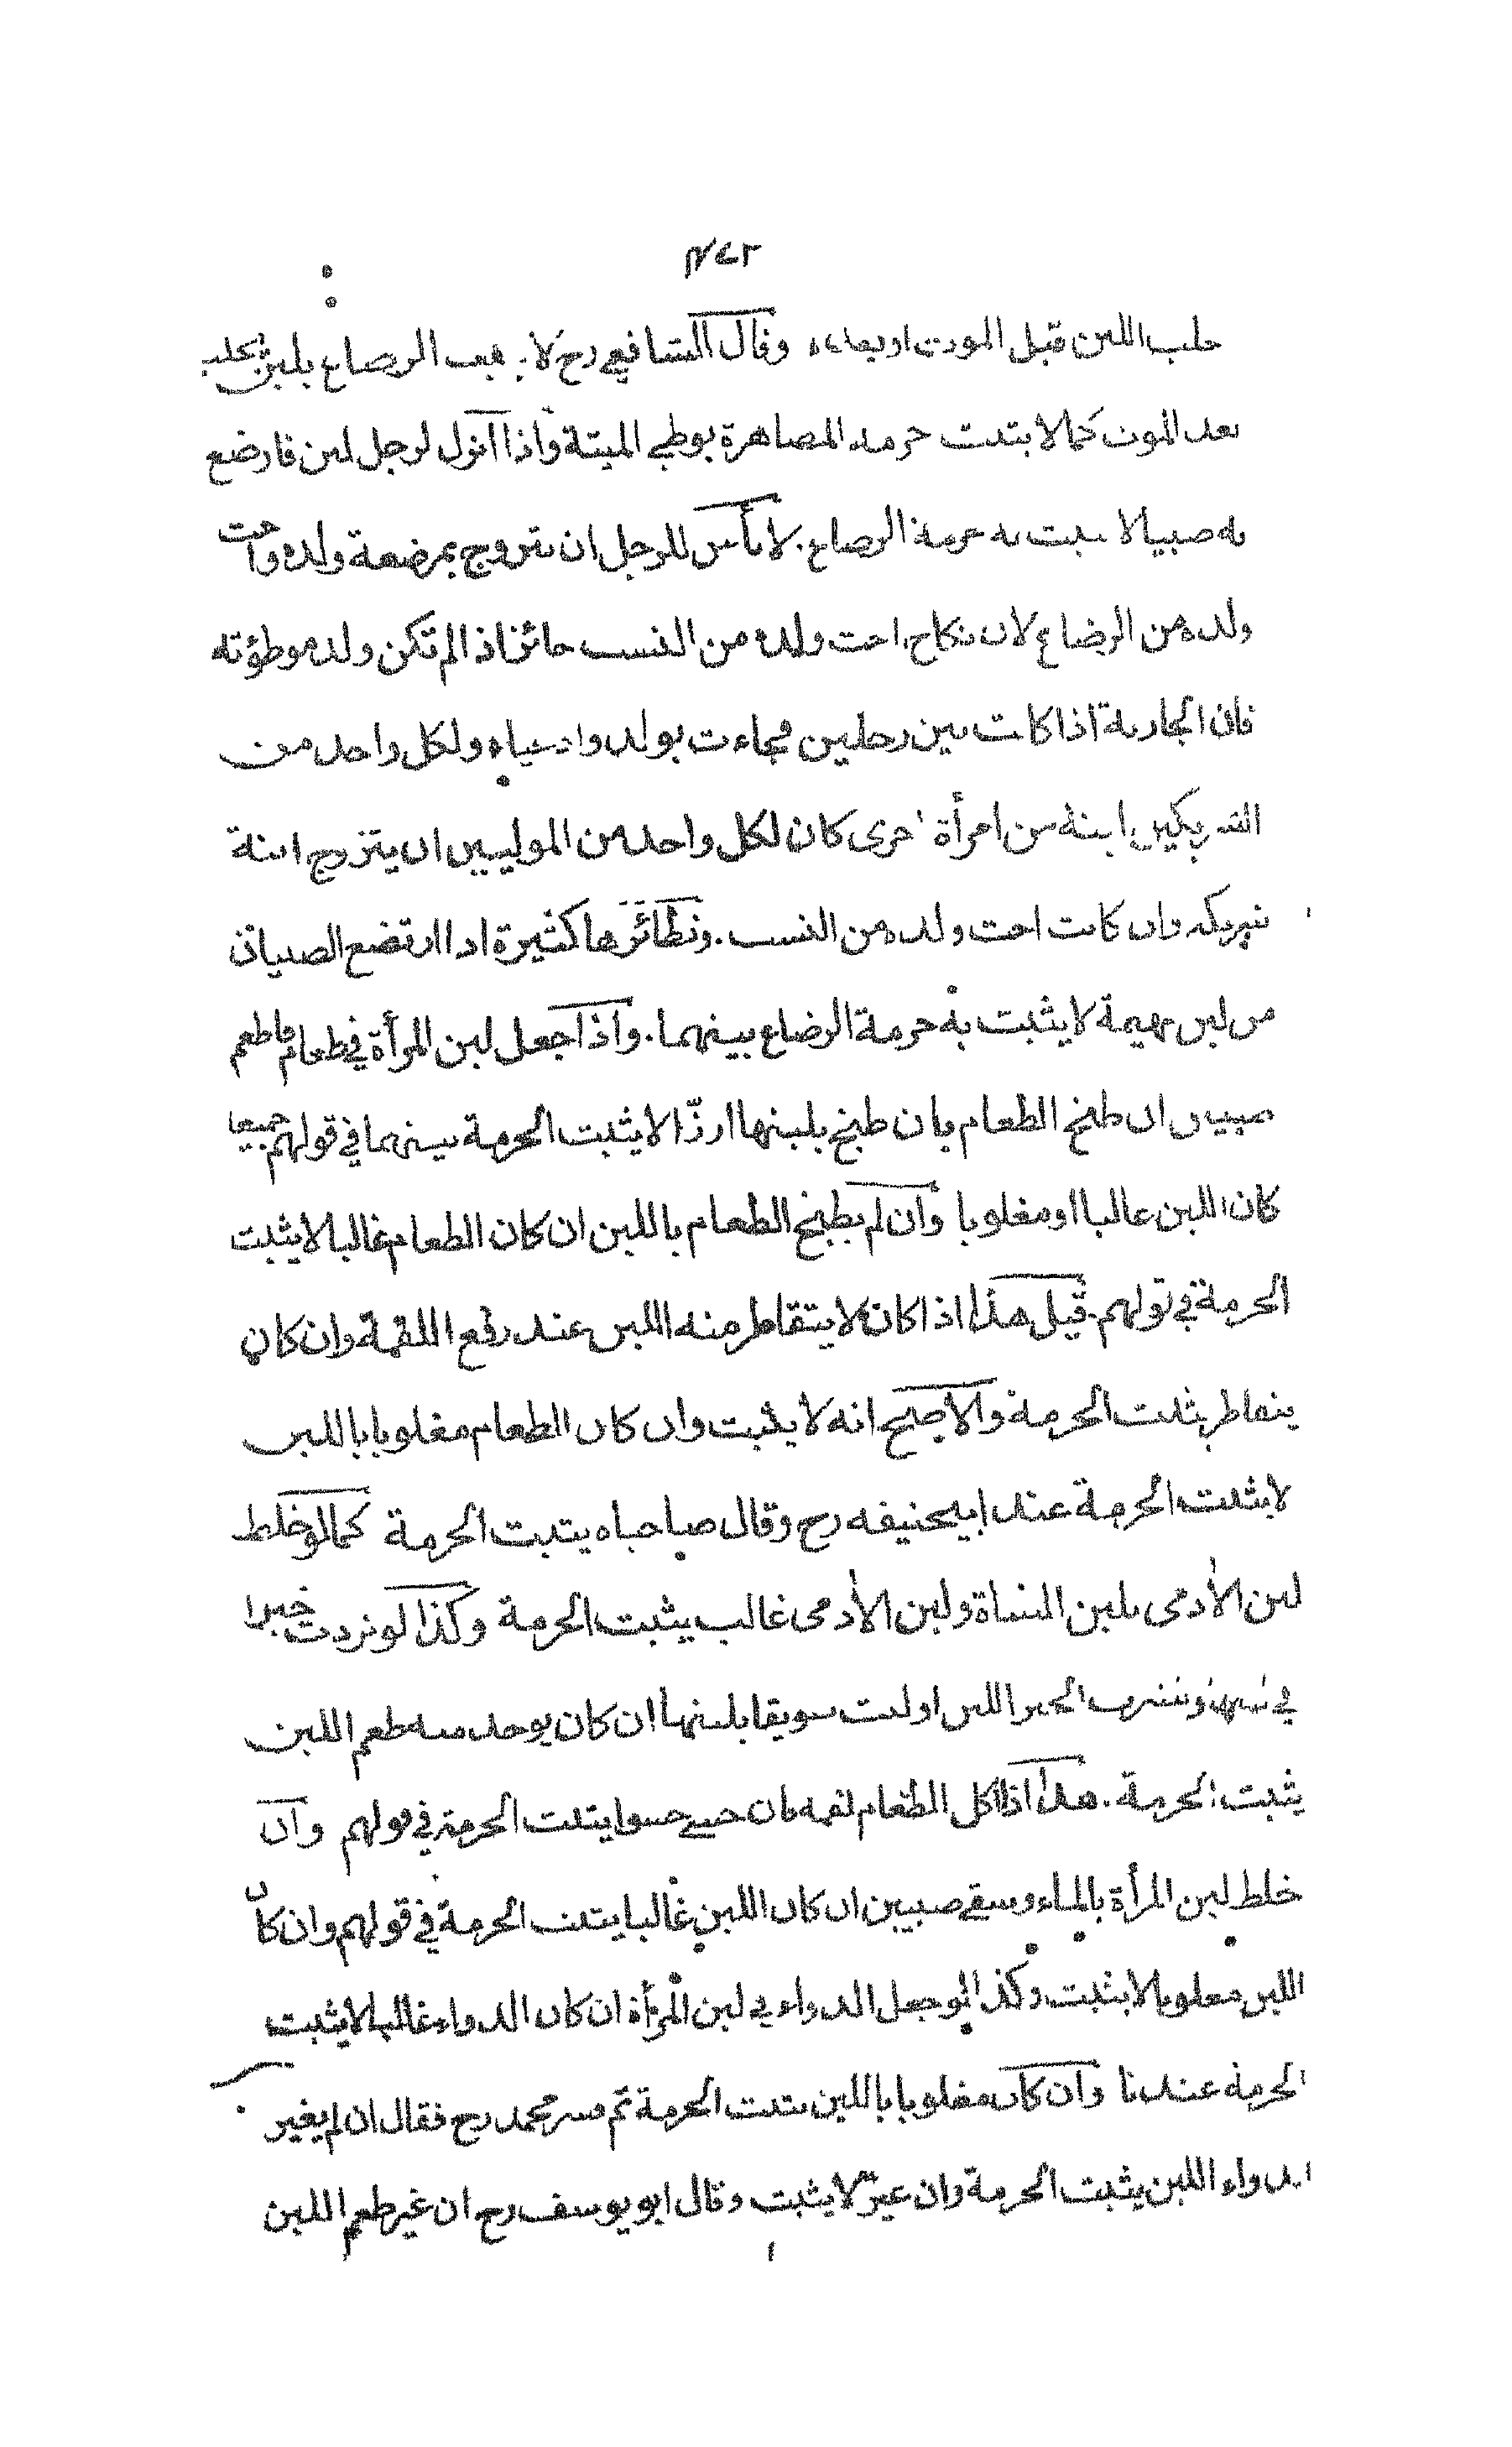 حلب اللبن قبل الموت او بعده وقال الشافعي رح لا يثبت الرضاع بلبن يحلب
بعد الموت كما لا يثبت حرمة المصاهرة بوطي الميتة واذا انزل لرجل لبن فارضع
به صبيا لا يثبت به حرمة الرضاع. لا بأس للرجل ان يتزوج بمرضعة ولده واخت
ولده من الرضاع لان نكاح اخت ولده من النسب جائز اذا لم تكن ولد موطؤته
فان الجارية اذا كانت بين رجلين فجاءت بولد وادعياه ولكل واحد من
الشريكين ابنة من امرأة اخرى كان لكل واحد من الموليين ان يتزوج ابنة
شريكه وان كانت اخت ولده من النسب. ونظائرها كثيرة اذا ارتضع الصبيان
من لبن بهيمة لا يثبت به حرمة الرضاع بينهما. واذا جعل لبن المرأة في طعام فاطعم
صبيين ان طبخ الطعام بان طبخ بلبنها ارزّا لا يثبت الحرمة بينهما في قولهم جميعا
كان اللبن غالبا او مغلوبا وان لم يطبخ الطعام باللبن ان كان الطعام غالبا لا يثبت
الحرمة في قولهم. قيل هذا اذا كان لا يتقاطر منه اللبن عند رفع اللقمة وان كان
يتقاطر يثبت الحرمة والاصح انه لا يثبت وان كان الطعام مغلوبا باللبن
لا يثبت الحرمة عند ابيحنيفه رح وقال صاحباه يثبت الحرمة كما لو خلط
لبن الأدمى بلبن الشاة ولبن الأدمى غالب يثبت الحرمة وكذا لو نردت خبزا
في لبنها وتشرب الخبز اللبن او لتت سويقا بلبنها ان كان يوجد منه طعم اللبن
يثبت الحرمة. هذا اذا اكل الطعام لقمه فان حسى حسوا يثبت الحرمة في قولهم وان
خلط لبن المرأة بالماء وسقى صبيين ان كان اللبن غالبا يثبت الحرمة في قولهم وان كان
اللبن مغلوبا لا يثبت وكذا لو جعل الدواء في لبن المرأة ان كان الدواء غالبا لا يثبت
الحرمة عندنا وان كان مغلوبا باللبن يثبت الحرمة ثم فسر محمد رح فقال ان لم يغير
الدواء اللبن يثبت الحرمة وان غير لا يثبت وقال ابو يوسف رح ان غير طعم اللبن